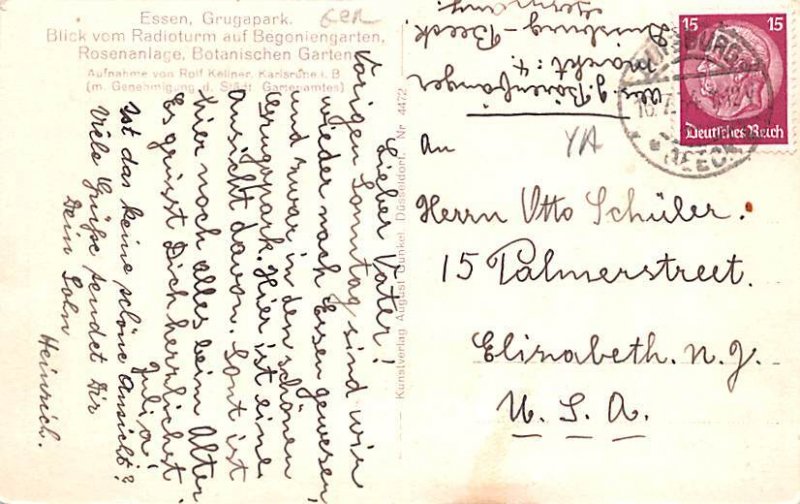 Essen, Grugapark.
Blick vom Radioturm auf Begoniengarten,
Rosenanlage, Botanischen Garten
Aufnahme von Rolf Kellner, Karlsruhe i. B
(m. Genehmigung d. Städt. Gartenamtes)
Lieber Vater!
Vorigen Sonntag sind wir
wieder nach Essen gewesen,
und zwar in den schönen
Grugapark. Hier ist eine
Ansicht davon. Sonst ist
hier noch alles beim Alten
Es grüsst Dich herzlichst
Julia!
Ist das keine schöne Ansicht?
Viele Grüße sendet Dir
Dein Sohn
Heinrich.
Kunstverlag August Gunkel, Düsseldorf, Nr. 4472
Markt: 4.
Duisburg - Beeck.
Germany.
15 15
Deutsches Reich
DUISBURG
BEECK
An
Herrn Otto Schüler.
15 Palmerstreet.
Elisabeth. N. J.
U. S. A.